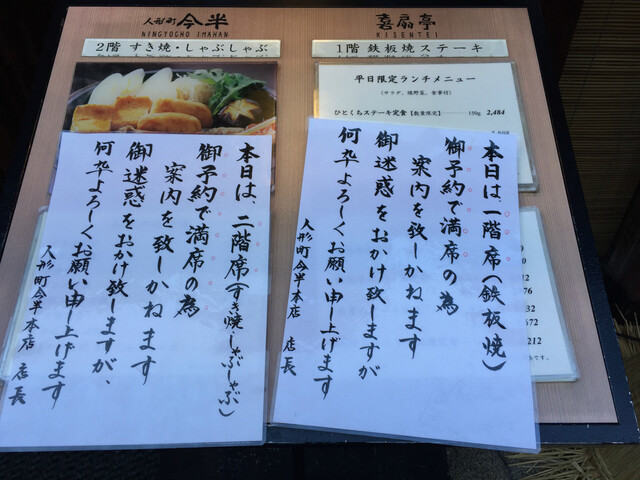 人形町 今半
NINGYOCHO IMAHAN
2階 すき焼・しゃぶしゃぶ
喜扇亭
KISENTEI
1階 鉄板焼ステーキ
平日限定ランチメニュー
(サラダ、焼野菜、食事付)
ひとくちステーキ定食【数量限定】 150g 2,484
本日は、一階席(鉄板焼)
御予約で満席の為
案内を致しかねます
御迷惑をおかけ致しますが
何卒よろしくお願い申し上げます
人形町今半本店 店長
本日は、二階席(すき焼しゃぶしゃぶ)
御予約で満席の為
案内を致しかねます
御迷惑をおかけ致しますが、
何卒よろしくお願い申し上げます
人形町今半本店 店長